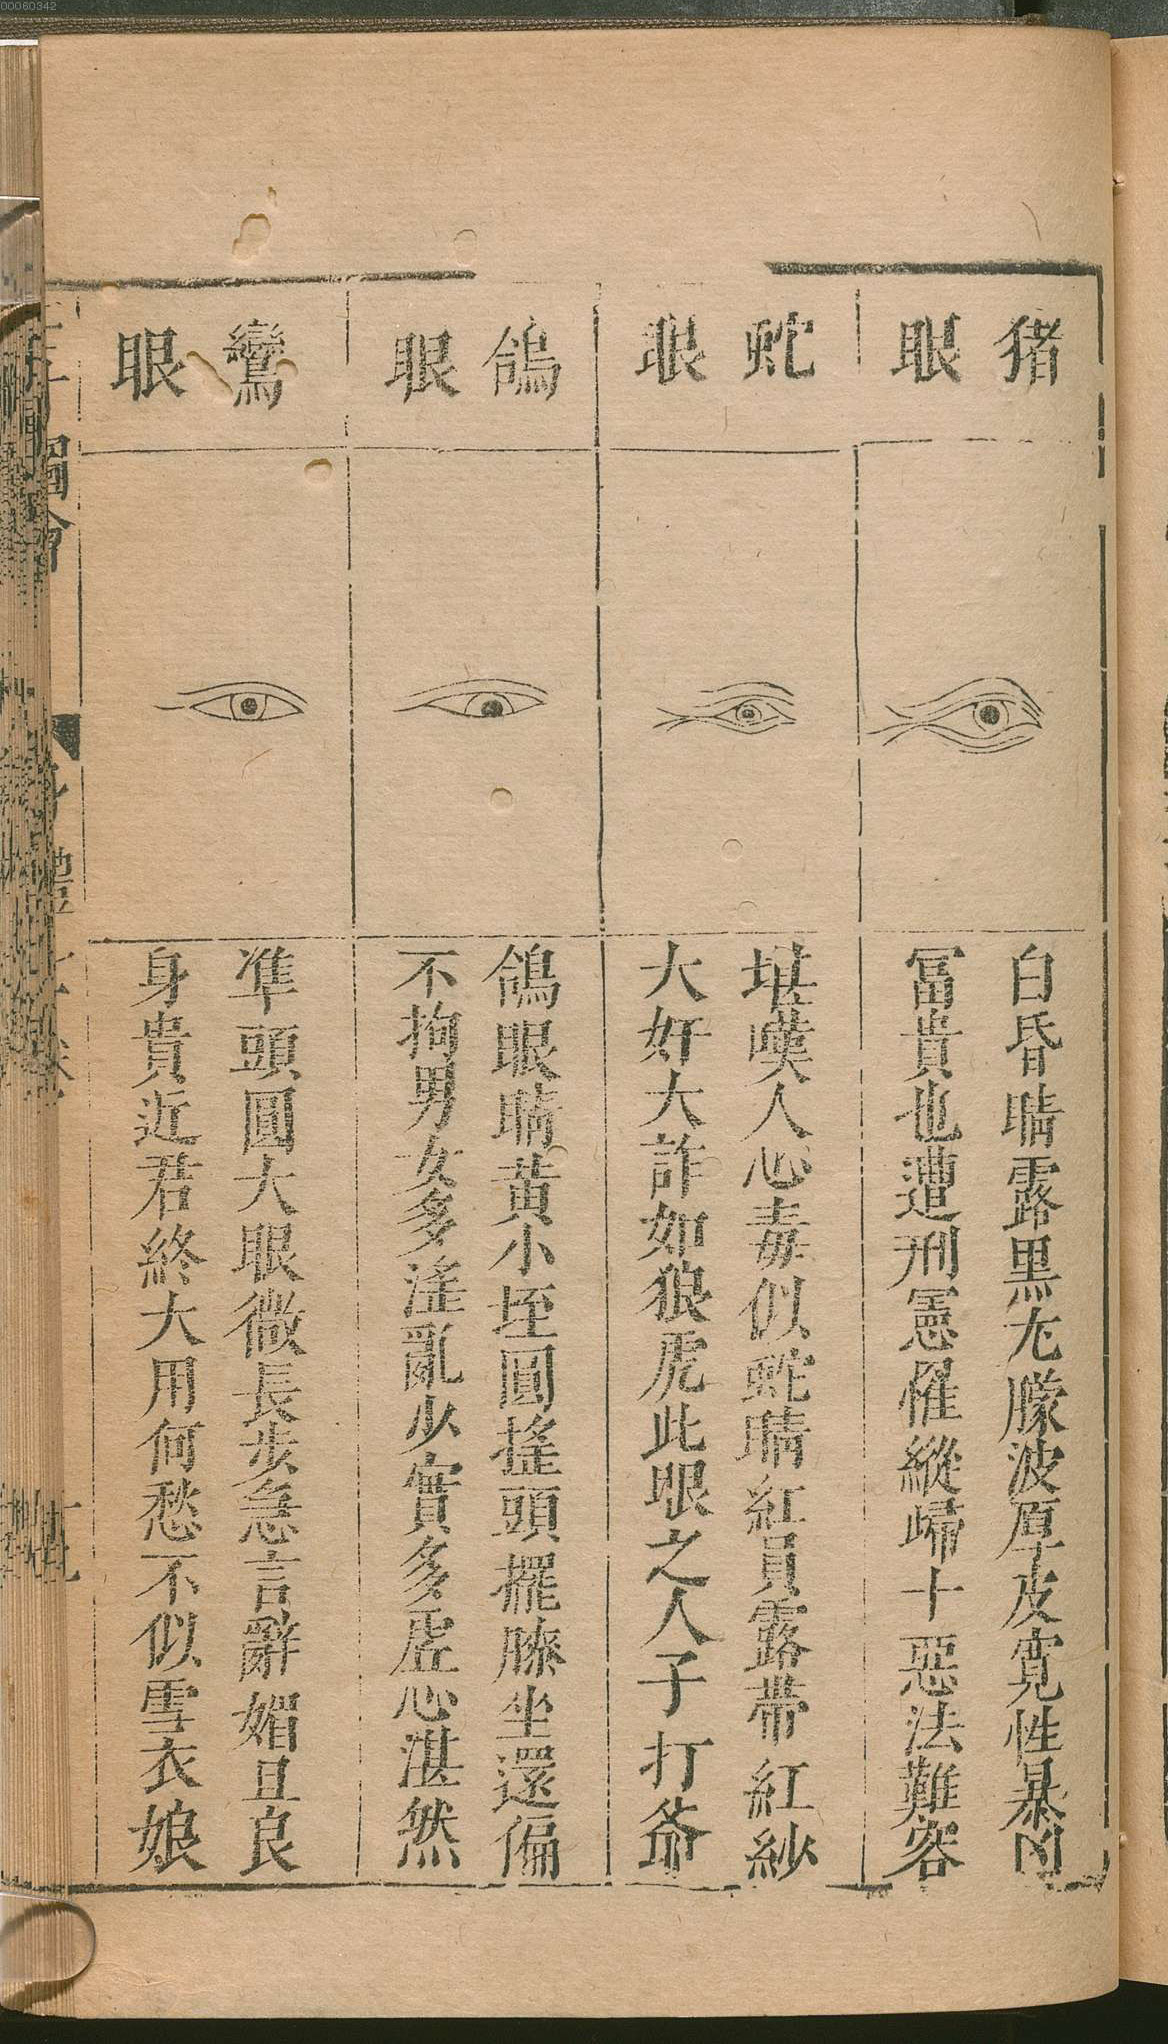 00060342
猪眼
白昏睛露黒尢朦波厚皮寛性暴凶
冨貴也遭刑憲罹縱歸十惡法難容
蛇眼
堪嘆人心毒似蛇睛紅員露帶紅紗
大奸大詐如狼虎此眼之人子打爺
鴿眼
鴿眼睛黃小垤圓搖頭擺膝坐還偏
不拘男女多滛亂少實多虛心湛然
鸞眼
凖頭圓大眼微長步急言辭媚且良
身貴近君終大用何愁不似雪衣娘
圖會
身體